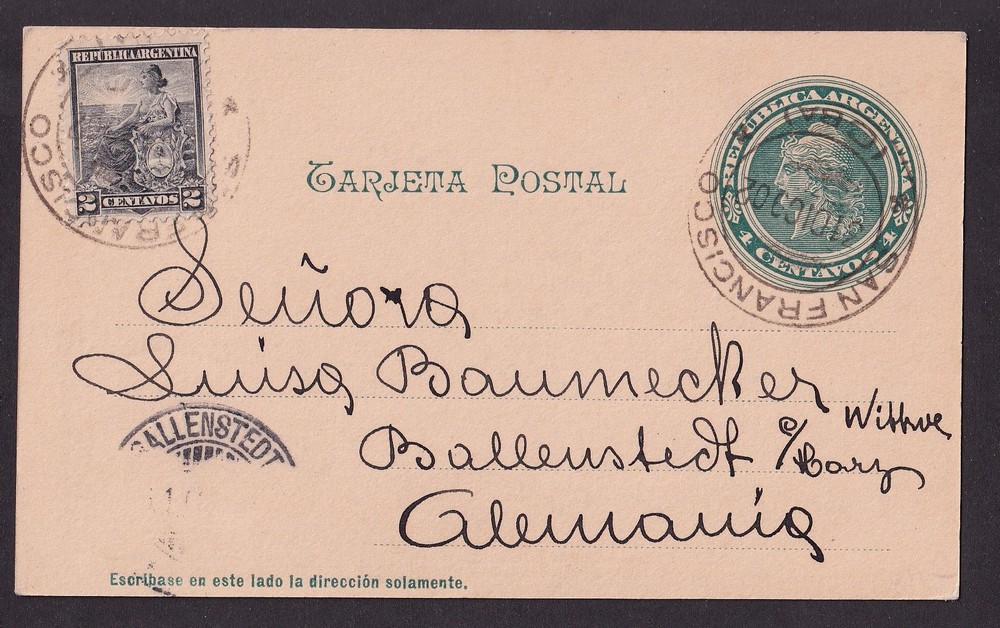 REPUBLICA ARGENTINA
2 CENTAVOS 2
FRANCISCO
TARJETA POSTAL
REPUBLICA ARGENTINA
4 CENTAVOS 4
SAN FRANCISCO
DIC
Señora
Luisa Baumecker
Wittwe
Ballenstedt a/Harz
Alemania
BALLENSTEDT
Escribase en este lado la dirección solamente.